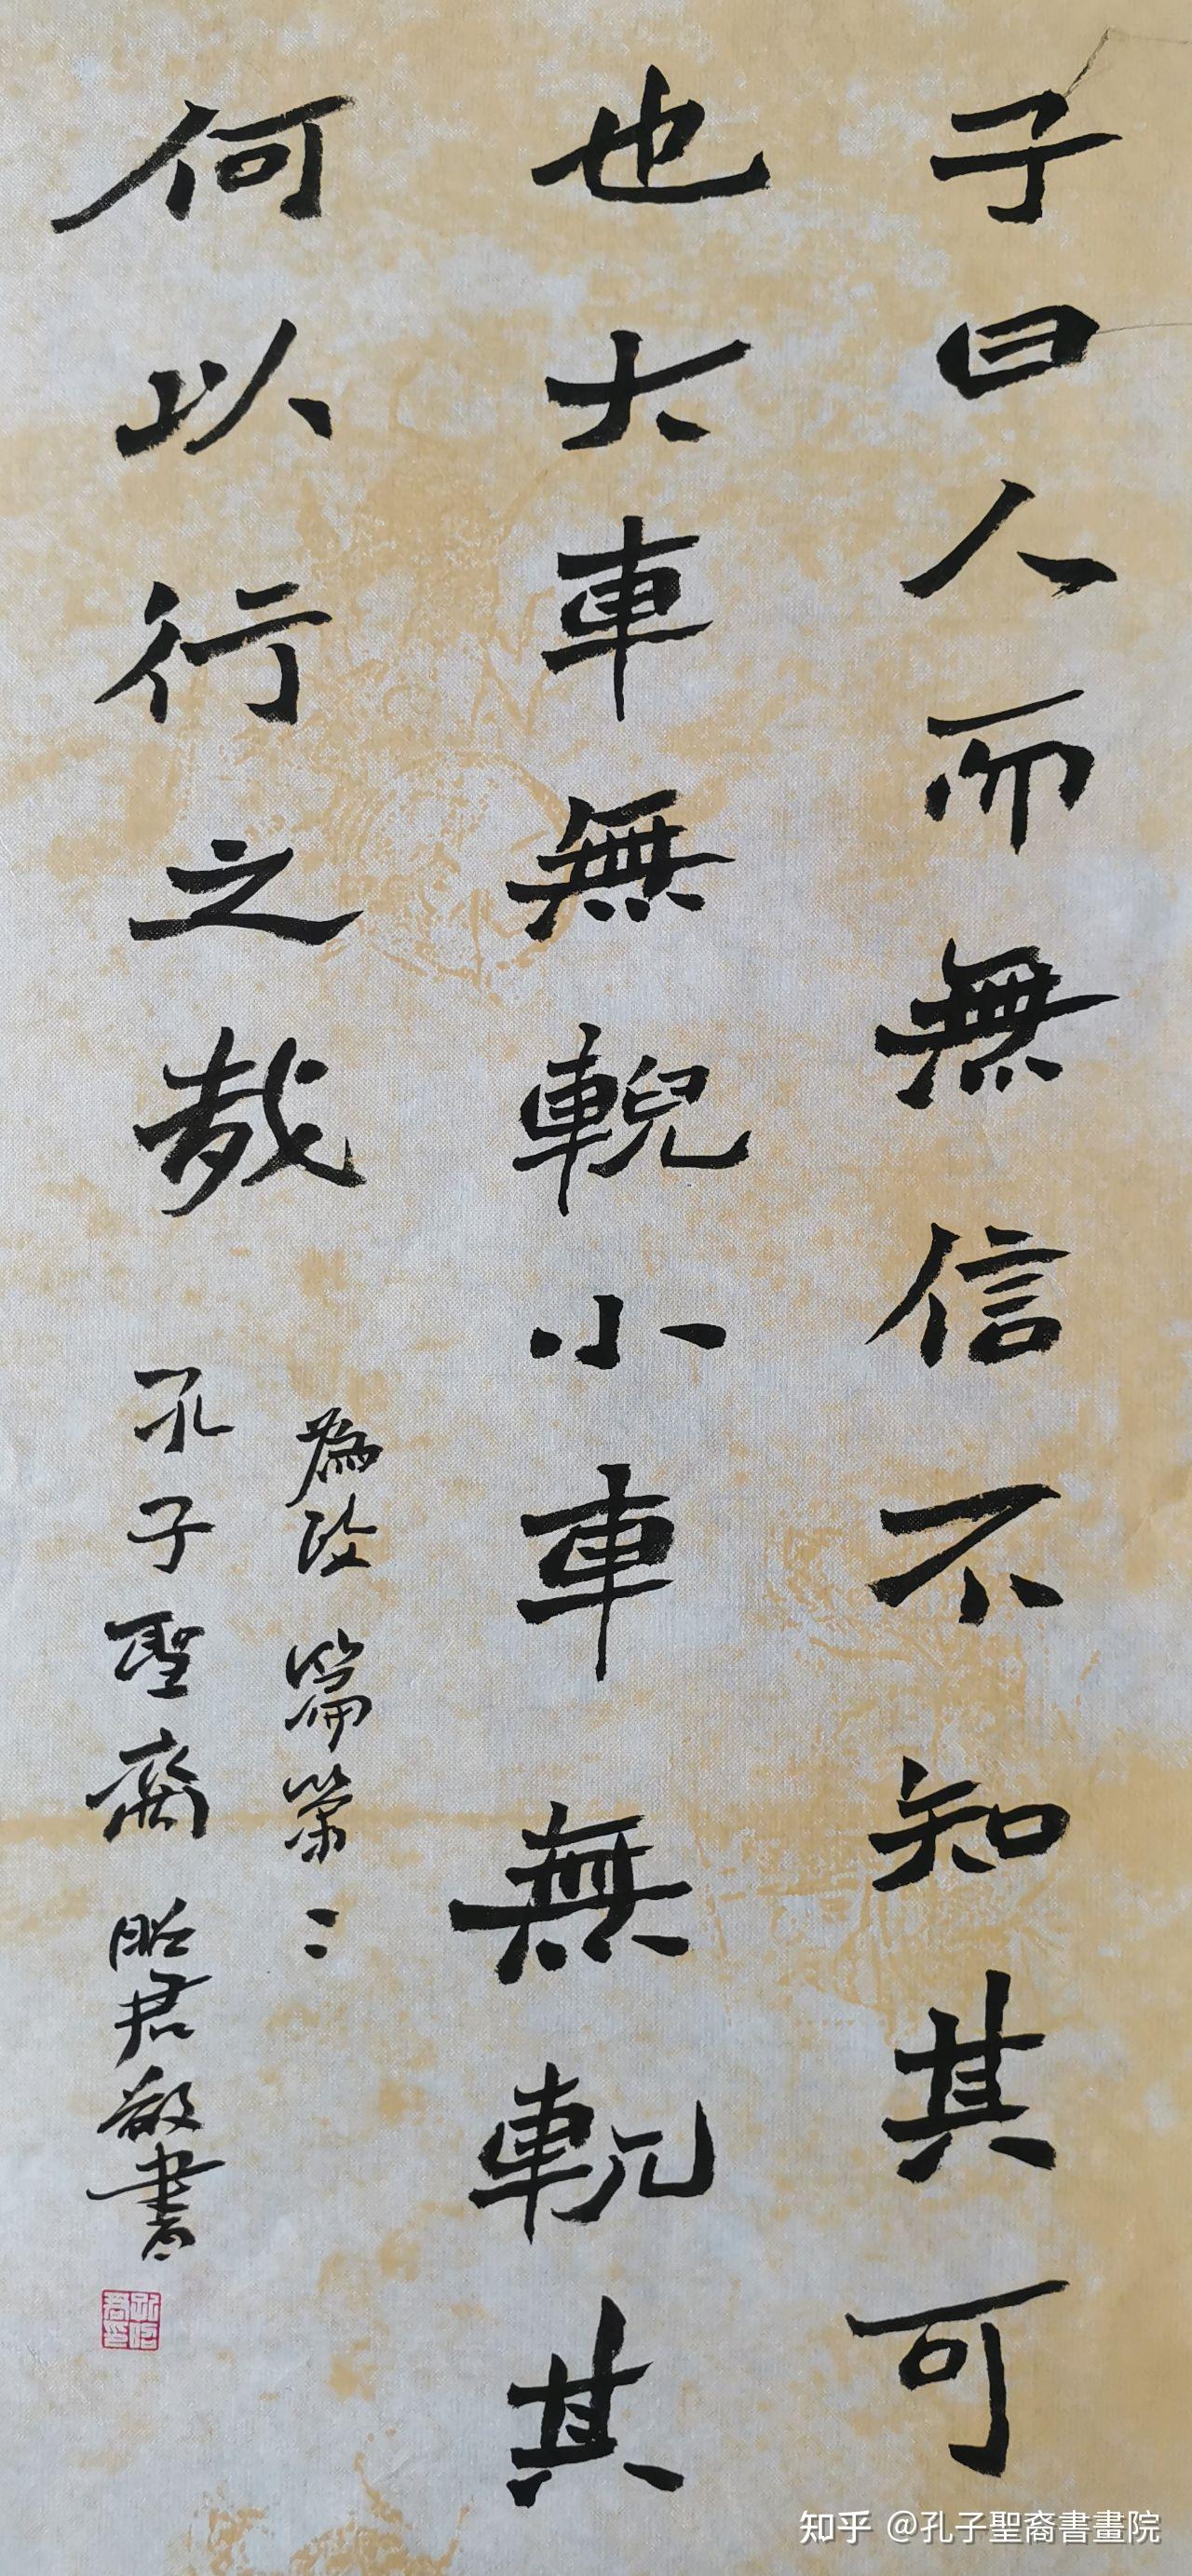 子曰人而無信不知其可
也大車無輗小車無軏其
何以行之哉
為政篇第二
孔子聖裔昭君敬書
孔昭君印
知乎 @孔子聖裔書畫院